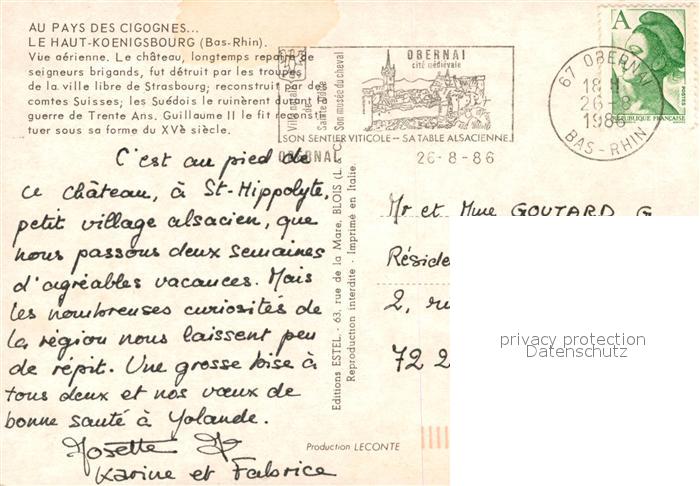 AU PAYS DES CIGOGNES...
LE HAUT-KOENIGSBOURG (Bas-Rhin).
Vue aérienne. Le château, longtemps repaire de
seigneurs brigands, fut détruit par les troupes
de la ville libre de Strasbourg; reconstruit par des
comtes Suisses; les Suédois le ruinèrent durant la
guerre de Trente Ans. Guillaume II le fit reconsti-
tuer sous sa forme du XVè siècle.
OBERNAI
cité médiévale
Ville natale
de
Sainte Odile
Son musée du cheval
SON SENTIER VITICOLE - SA TABLE ALSACIENNE
OBERNAI
26-8-86
67 OBERNAI
18H
26-8
1986
BAS-RHIN
A
POSTES
REPUBLIQUE FRANÇAISE
C'est au pied de
ce château, à St-Hippolyte,
petit village alsacien, que
nous passons deux semaines
d'agréables vacances. Mais
les nombreuses curiosités de
la région nous laissent peu
de répit. Une grosse bise à
tous deux et nos vœux de
bonne santé à Yolande.
Josette
Karine et Fabrice
Editions ESTEL, - 63, rue de la Mare, BLOIS (L. & C.)
Reproduction interdite - Imprimé en Italie.
Production LECONTE
Mr et Mme GOUTARD G
Réside
2, ru
72 2
privacy protection
Datenschutz